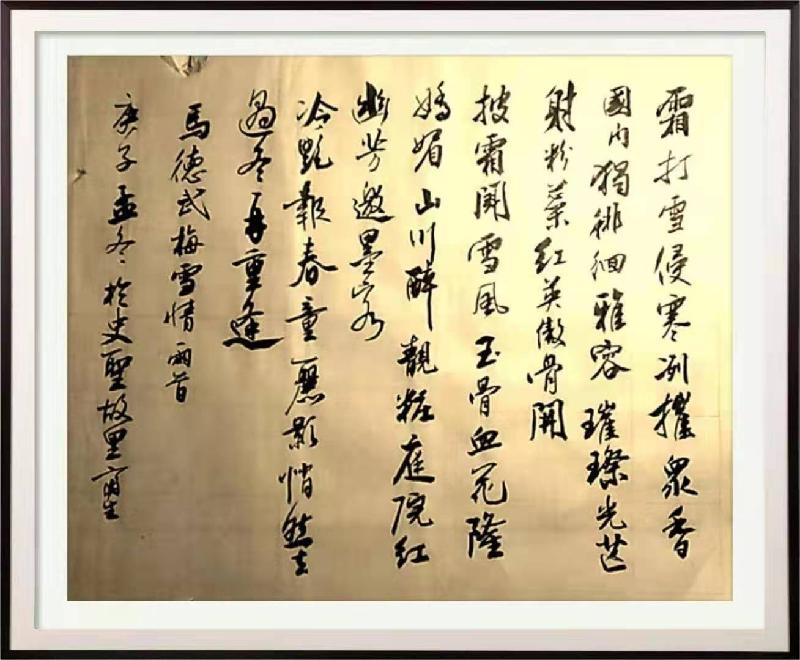 霜打雪侵寒冽摧眾香
國内獨徘徊雅容璀璨光芒
射粉葉紅英傲骨開
披霜開雪風玉骨血花隆
嬌媚山川醉靚粧庭院紅
幽芳邀墨客
冷艷報春童麗影悄然去
過冬再重逢
馬德武梅雪情兩首
庚子孟冬於史聖故里